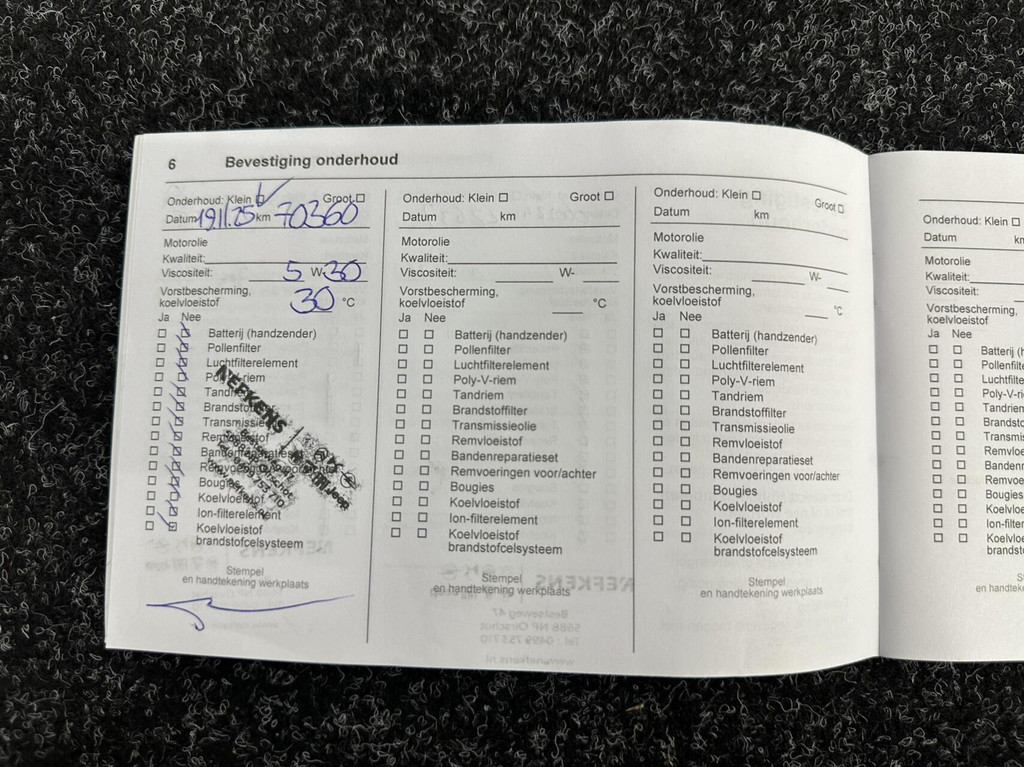 6 Bevestiging onderhoud
Onderhoud: Klein Groot
Datum 19.11.25 km 70360
Motorolie
Kwaliteit:
Viscositeit: 5 W-30
Vorstbescherming,
koelvloeistof 30 °C
Ja Nee
Batterij (handzender)
Pollenfilter
Luchtfilterelement
Poly-V-riem
Tandriem
Brandstoffilter
Transmissieolie
Remvloeistof
Bandenreparatieset
Remvoeringen voor/achter
Bougies
Koelvloeistof
Ion-filterelement
Koelvloeistof
brandstofcelsysteem
NEFKENS
Stempel
en handtekening werkplaats
Onderhoud: Klein Groot
Datum km
Motorolie
Kwaliteit:
Viscositeit: W-
Vorstbescherming,
koelvloeistof °C
Ja Nee
Batterij (handzender)
Pollenfilter
Luchtfilterelement
Poly-V-riem
Tandriem
Brandstoffilter
Transmissieolie
Remvloeistof
Bandenreparatieset
Remvoeringen voor/achter
Bougies
Koelvloeistof
Ion-filterelement
Koelvloeistof
brandstofcelsysteem
Stempel
en handtekening werkplaats
Onderhoud: Klein Groot
Datum km
Motorolie
Kwaliteit:
Viscositeit: W-
Vorstbescherming,
koelvloeistof °C
Ja Nee
Batterij (handzender)
Pollenfilter
Luchtfilterelement
Poly-V-riem
Tandriem
Brandstoffilter
Transmissieolie
Remvloeistof
Bandenreparatieset
Remvoeringen voor/achter
Bougies
Koelvloeistof
Ion-filterelement
Koelvloeistof
brandstofcelsysteem
Stempel
en handtekening werkplaats
Onderhoud: Klein
Datum km
Motorolie
Kwaliteit:
Viscositeit:
Vorstbescherming,
koelvloeistof
Ja Nee
Batterij (h
Pollenfilte
Luchtfilte
Poly-V-ri
Tandriem
Brandsto
Transmis
Remvloe
Bandenr
Remvoe
Bougies
Koelvloe
Ion-filte
Koelvlo
brandst
en hand